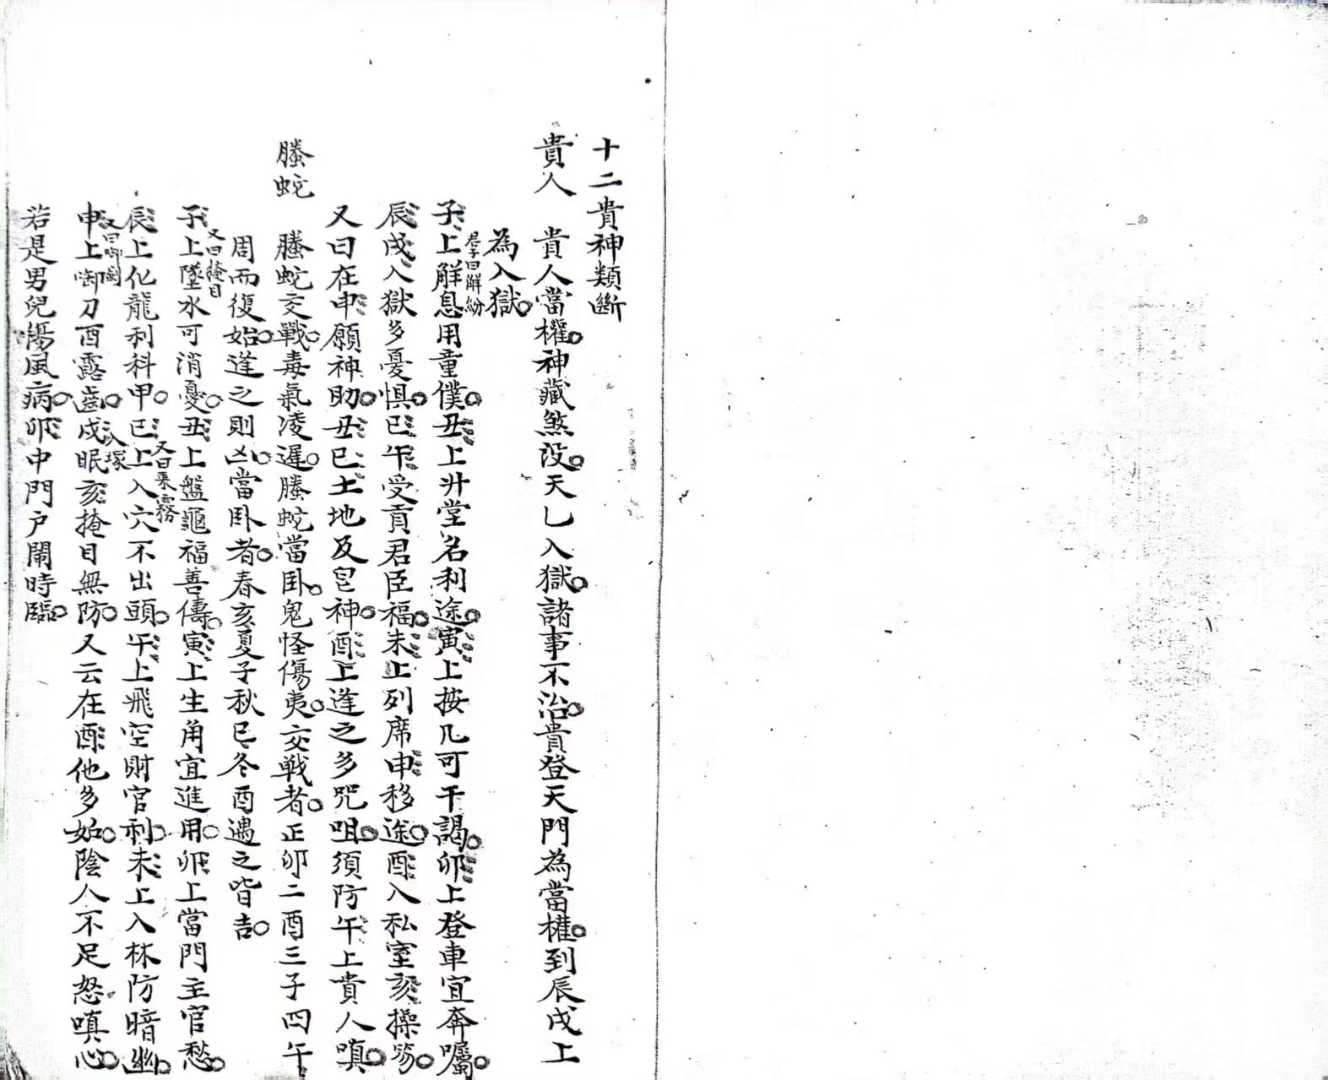 十二貴神類斷
貴人　貴人當權。神藏煞没。天乚入獄。諸事不治。貴登天門為當權。到辰戌上
為入獄。
子上解息用童僕。丑上升堂名利途。寅上按几可干謁。卯上登車宜奔囑。
辰戌入獄多憂惧。巳午受貢君臣福。未上列席申移途。酉入私室亥操笏。
又曰在申願神助。丑巳土地及皂神。酉上逢之多咒咀。須防午上貴人嗔。
螣蛇　螣蛇交戰。毒氣凌遲。螣蛇當卧。鬼怪傷夷。交戰者。正卯二酉三子四午
周而復始。逢之則凶。當卧者。春亥夏子秋巳冬酉遇之皆吉。
子上墜水可消憂。丑上盤龜福善儔。寅上生角宜進用。卯上當門主官愁。
又曰掩目
辰上化龍利科甲。巳上入穴不出頭。午上飛空財官利。未上入林防暗幽。
又曰乘霧
申上啣刀酉露齒。戌眠亥掩目無防。又云在酉他多始。陰人不足怒嗔心。
入塚
若是男兒楊風病。卯中門户鬧時臨。